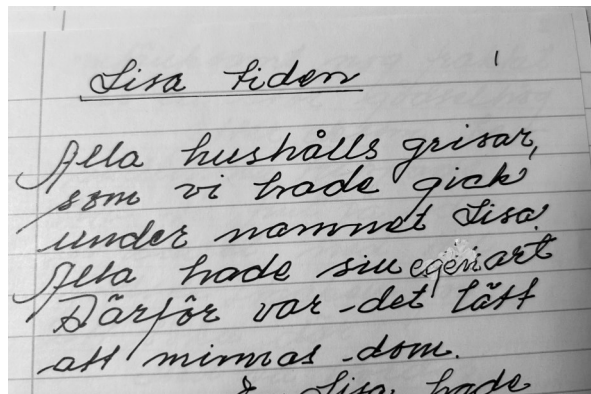 Lisa tiden
1
Alla hushålls grisar,
som vi hade gick
under namnet Lisa.
Alla hade sin egen art
Därför var det lätt
att minnas dom.
Lisa hade